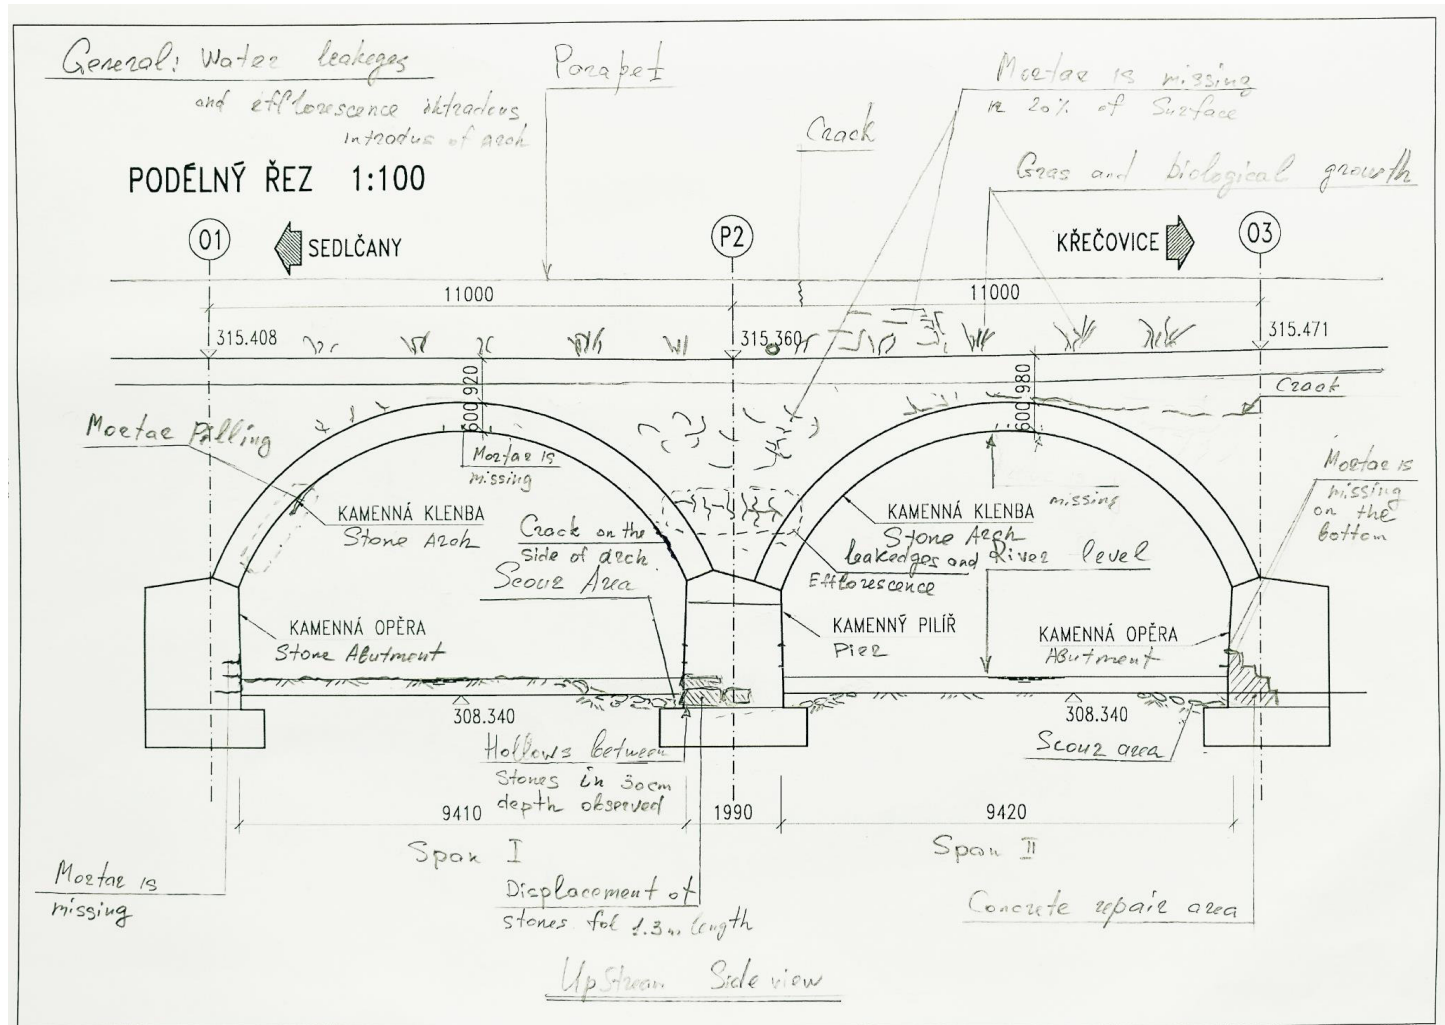 General: Water leakeges
and efflorescence intradous,
intrados of arch
Parapet
Mortar is missing
in 20% of Surface
Crack
Gras and biological growth
PODÉLNÝ ŘEZ 1:100
O1
SEDLČANY
P2
KŘEČOVICE
O3
11000
11000
315.408
315.360
315.471
920
600
980
600
Crack
Mortar Pilling
Mortar is
missing
missing
Mortar is
missing
on the
bottom
KAMENNÁ KLENBA
Stone Arch
Crack on the
side of arch
Scour Area
KAMENNÁ KLENBA
Stone Arch
leakedges and
Efflorescence
River level
KAMENNÁ OPĚRA
Stone Abutment
KAMENNÝ PILÍŘ
Pier
KAMENNÁ OPĚRA
Abutment
308.340
308.340
Hollows between
stones in 30cm
depth observed
Scour area
9410
1990
9420
Span I
Span II
Mortar is
missing
Displacement of
stones fol 1.3m length
Concrete repair area
UpStream Side view